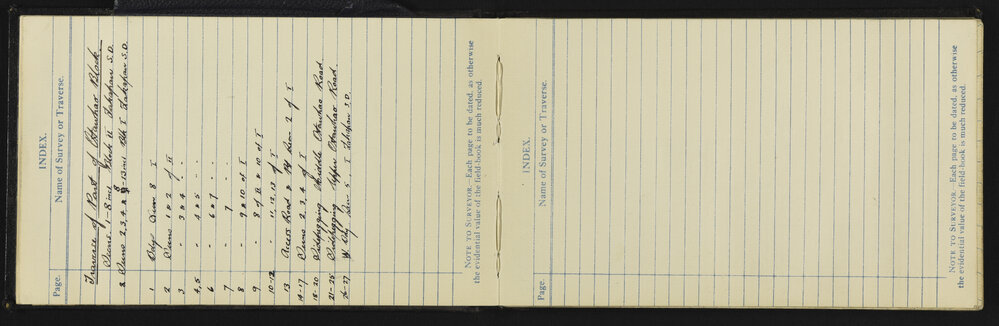 INDEX.
Page. Name of Survey or Traverse.
Traverse of Part of Otawhao Block.
Secns. 1-8 incl Block II Takapau S.D.
& Secns 2, 3, 4, & 8-13 incl Blk I Takapau S.D.
1 Bdy Secn 8 I
2 Secns 1 & 2 of II
3 " 3 & 4 "
4, 5 " 4 & 5 " "
6 " 6 & 7 "
7 " 7 " "
8 " 9 & 10 of I
9 " 8 of II & 10 of I
10-12 " 11, 12, 13 of I
13 Access Road & Secn 2 of I
14-17 Secns 2, 3, 4 of I
18-20 Sidepegging Middle Otawhao Road.
21-25 Sidepegging Upper Otawhao Road.
26-27 Bdy Secn 5, I Takapau S.D.
NOTE TO SURVEYOR.—Each page to be dated, as otherwise
the evidential value of the field-book is much reduced.
INDEX.
Page. Name of Survey or Traverse.
NOTE TO SURVEYOR.—Each page to be dated, as otherwise
the evidential value of the field-book is much reduced.